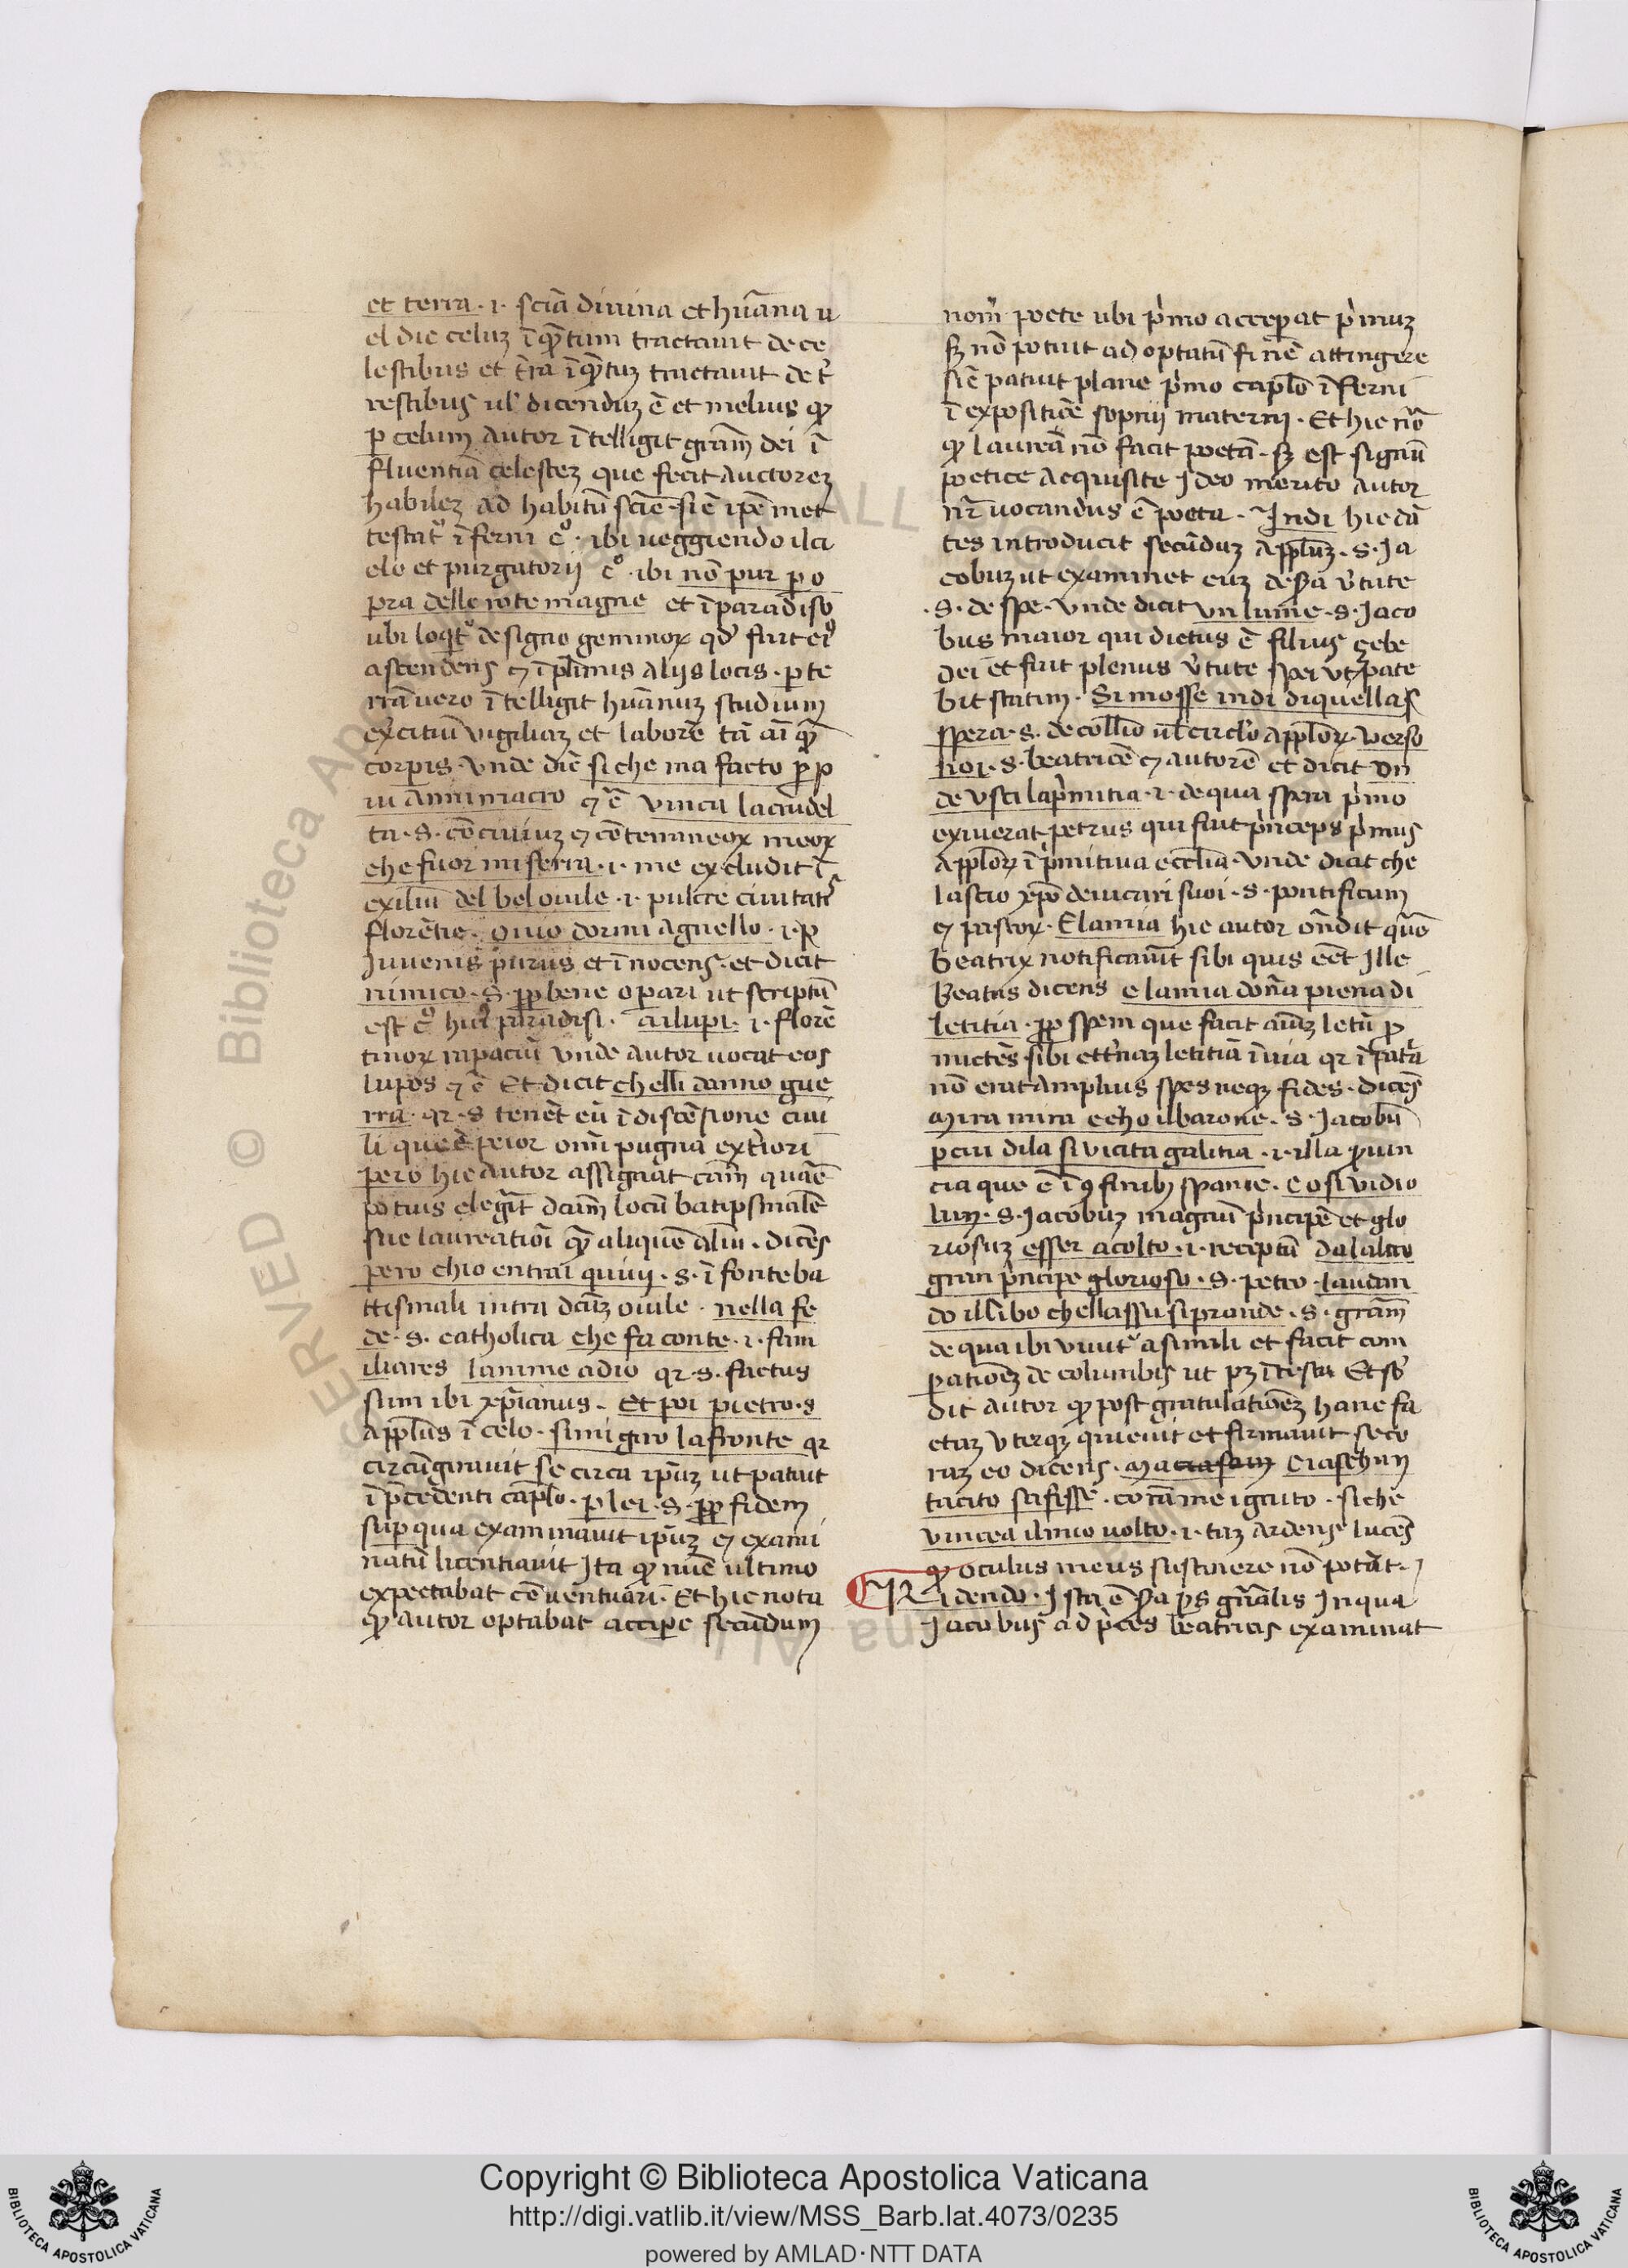 et terra · i · sciā diuina et hūana u
el dic celuȝ ī qȝtum tractauit de ce
lestibus et t̄ra ī qȝtuȝ tractauit de t̄
restibus ul' dicenduȝ ē et melius qȝ
p celum autor ītelligit gram̄ dei ī
fluentiā celesteȝ que fecit auctoreȝ
habileȝ ad habitū scīe · sic̄ ip̄emet
testat' īferni c° · ibi ueggiendo il ci
elo et purgatorij c° · ibi nō pur p o
pra delle rote magne et ī paradiso
ubi loqt' de signo geminoꝝ qd' fuit ei'
ascendens ⁊ ī plīmis alijs locis · p te
rrā uero ītelligit hūanuȝ studium
ex̄citiū vigiliaȝ et laborē tā aī qȝ
corpis · vnde dic̄ si che ma facto p̄ p
iu anni macro ⁊ ē vinca la crudel
ta · s · cōciuiuȝ ⁊ cōtemineoꝝ meoꝝ
che fuor mi serra · i · me excludit ī
exiliū del bel ouile · i · pulcre ciuitatꝭ
florētie · ouio dormi agnello · i · p
Juuenis purus et īnocens · et dicit
nimico · s · pp bene opari ut scriptū
est c° hui' paradisi · ai lupi · i · florē
tinoꝝ rapaciū vnde autor uocat eos
lupos ⁊ ē Et dicit chelli danno gue
rra · qr · s tenēt eū ī discēsione ciui
li que ē peior omī pugna ext̄iori
pero hic autor assignat cam̄ quāe
potius elegīt dcām locū batipsmalē
sue laureatiōi qȝ aliquē aliū · dicēs
pero chio entrai quiui · s · ī fonte ba
ttismali intra dcūȝ ouile · nella fe
de · s · catholica che fa conte · i · fam
iliares lanime adio qr · s · factus
sum ibi xp̄ianus · Et poi pietro · s
applūs ī celo · simi giro la fronte qr
circūgirauit se circa ip̄uȝ ut patuit
ī p̄cedenti cap̄lo · p lei · s · pp fidem
sup qua examinauit ip̄uȝ ⁊ exami
natū licentiauit Ita qȝ nūc ultimo
expectabat cōuentuari · Et hic nota
qȝ autor optabat accipe secundum
nom̄ poete ubi p̄mo acceperat p̄muȝ
sȝ nō potuit ad optatū finē attingere
sic̄ patuit plane p̄mo cap̄lo īferni
ī expositiōe sopnij materni · Et hic nō
qȝ laureā nō facit poetā · sȝ est signū
poetice acquisite Jdeo merito autor
nr̄ uocandus ē poeta · Indi hic dā
tes introducit secūduȝ applūȝ · s · Ja
cobuȝ ut examinet euȝ de s̄a v̄tute
· s · de spe · vnde dicit vn lume · s · Jaco
bus maior qui dictus ē filius çebe
dei et fuit plenus v̄tute spei vt pate
bit statim · Si mosse indi di quella s
spera · s · de collīo ul' circl'o applōꝝ · verso
noi · s · beatricē ⁊ autorē et dicit on
de vsci la p̄mitia · i · de qua spera p̄mo
exiuerat petrus qui fuit p̄nceps p̄mus
applōꝝ ī p̄mitiua eccl̄ia · vnde dicit che
lascio xp̄o de uicari suoi · s · pontificum
⁊ pastoꝝ · E la mia hic autor on̄dit quō
Beatrix notificauit sibi quis eēt Ille
beatus dicens e la mia dōna piena di
letitia · pp spem que facit aīuȝ letū p
mictēs sibi ett̄naȝ letitiā ī uia qr ī pat̄a
nō erat amplius spes neqȝ fides · dicēs
mira mira echo il barone · s · Jacobū
p cui di la si vicita galitia · i · illa puin
cia que ē ī ꝯfinibȝ spanie · e o si vidio
lun · s · Jacobuȝ magnū p̄ncipē et glo
riosuȝ esser acolto · i · receptū dalaltro
gran p̄ncipe glorioso · s · petro · laudan
do illibo chellassu si prande · s · gram̄
de qua ibi viuit' a simili et facit com
patioēȝ de columbis ut pȝ ī testu Et sb'
dit autor qȝ post gratulatiōeȝ hanc fa
ctaȝ vterqȝ quieuit et firmauit se co
raȝ eo dicens · Ma
tacito scisisse · corā me ignito · si che
vincea il mio uolto · i · taȝ ardens lucēs
qȝ oculus meus sustinere nō potāt ·
Ridendo · Ista ē s̄a ps gn̄alis In qua
Jacobus ad p̄ces beatricis examinat
Copyright © Biblioteca Apostolica Vaticana
http://digi.vatlib.it/view/MSS_Barb.lat.4073/0235
powered by AMLAD·NTT DATA
BIBLIOTECA APOSTOLICA VATICANA
BIBLIOTECA APOSTOLICA VATICANA